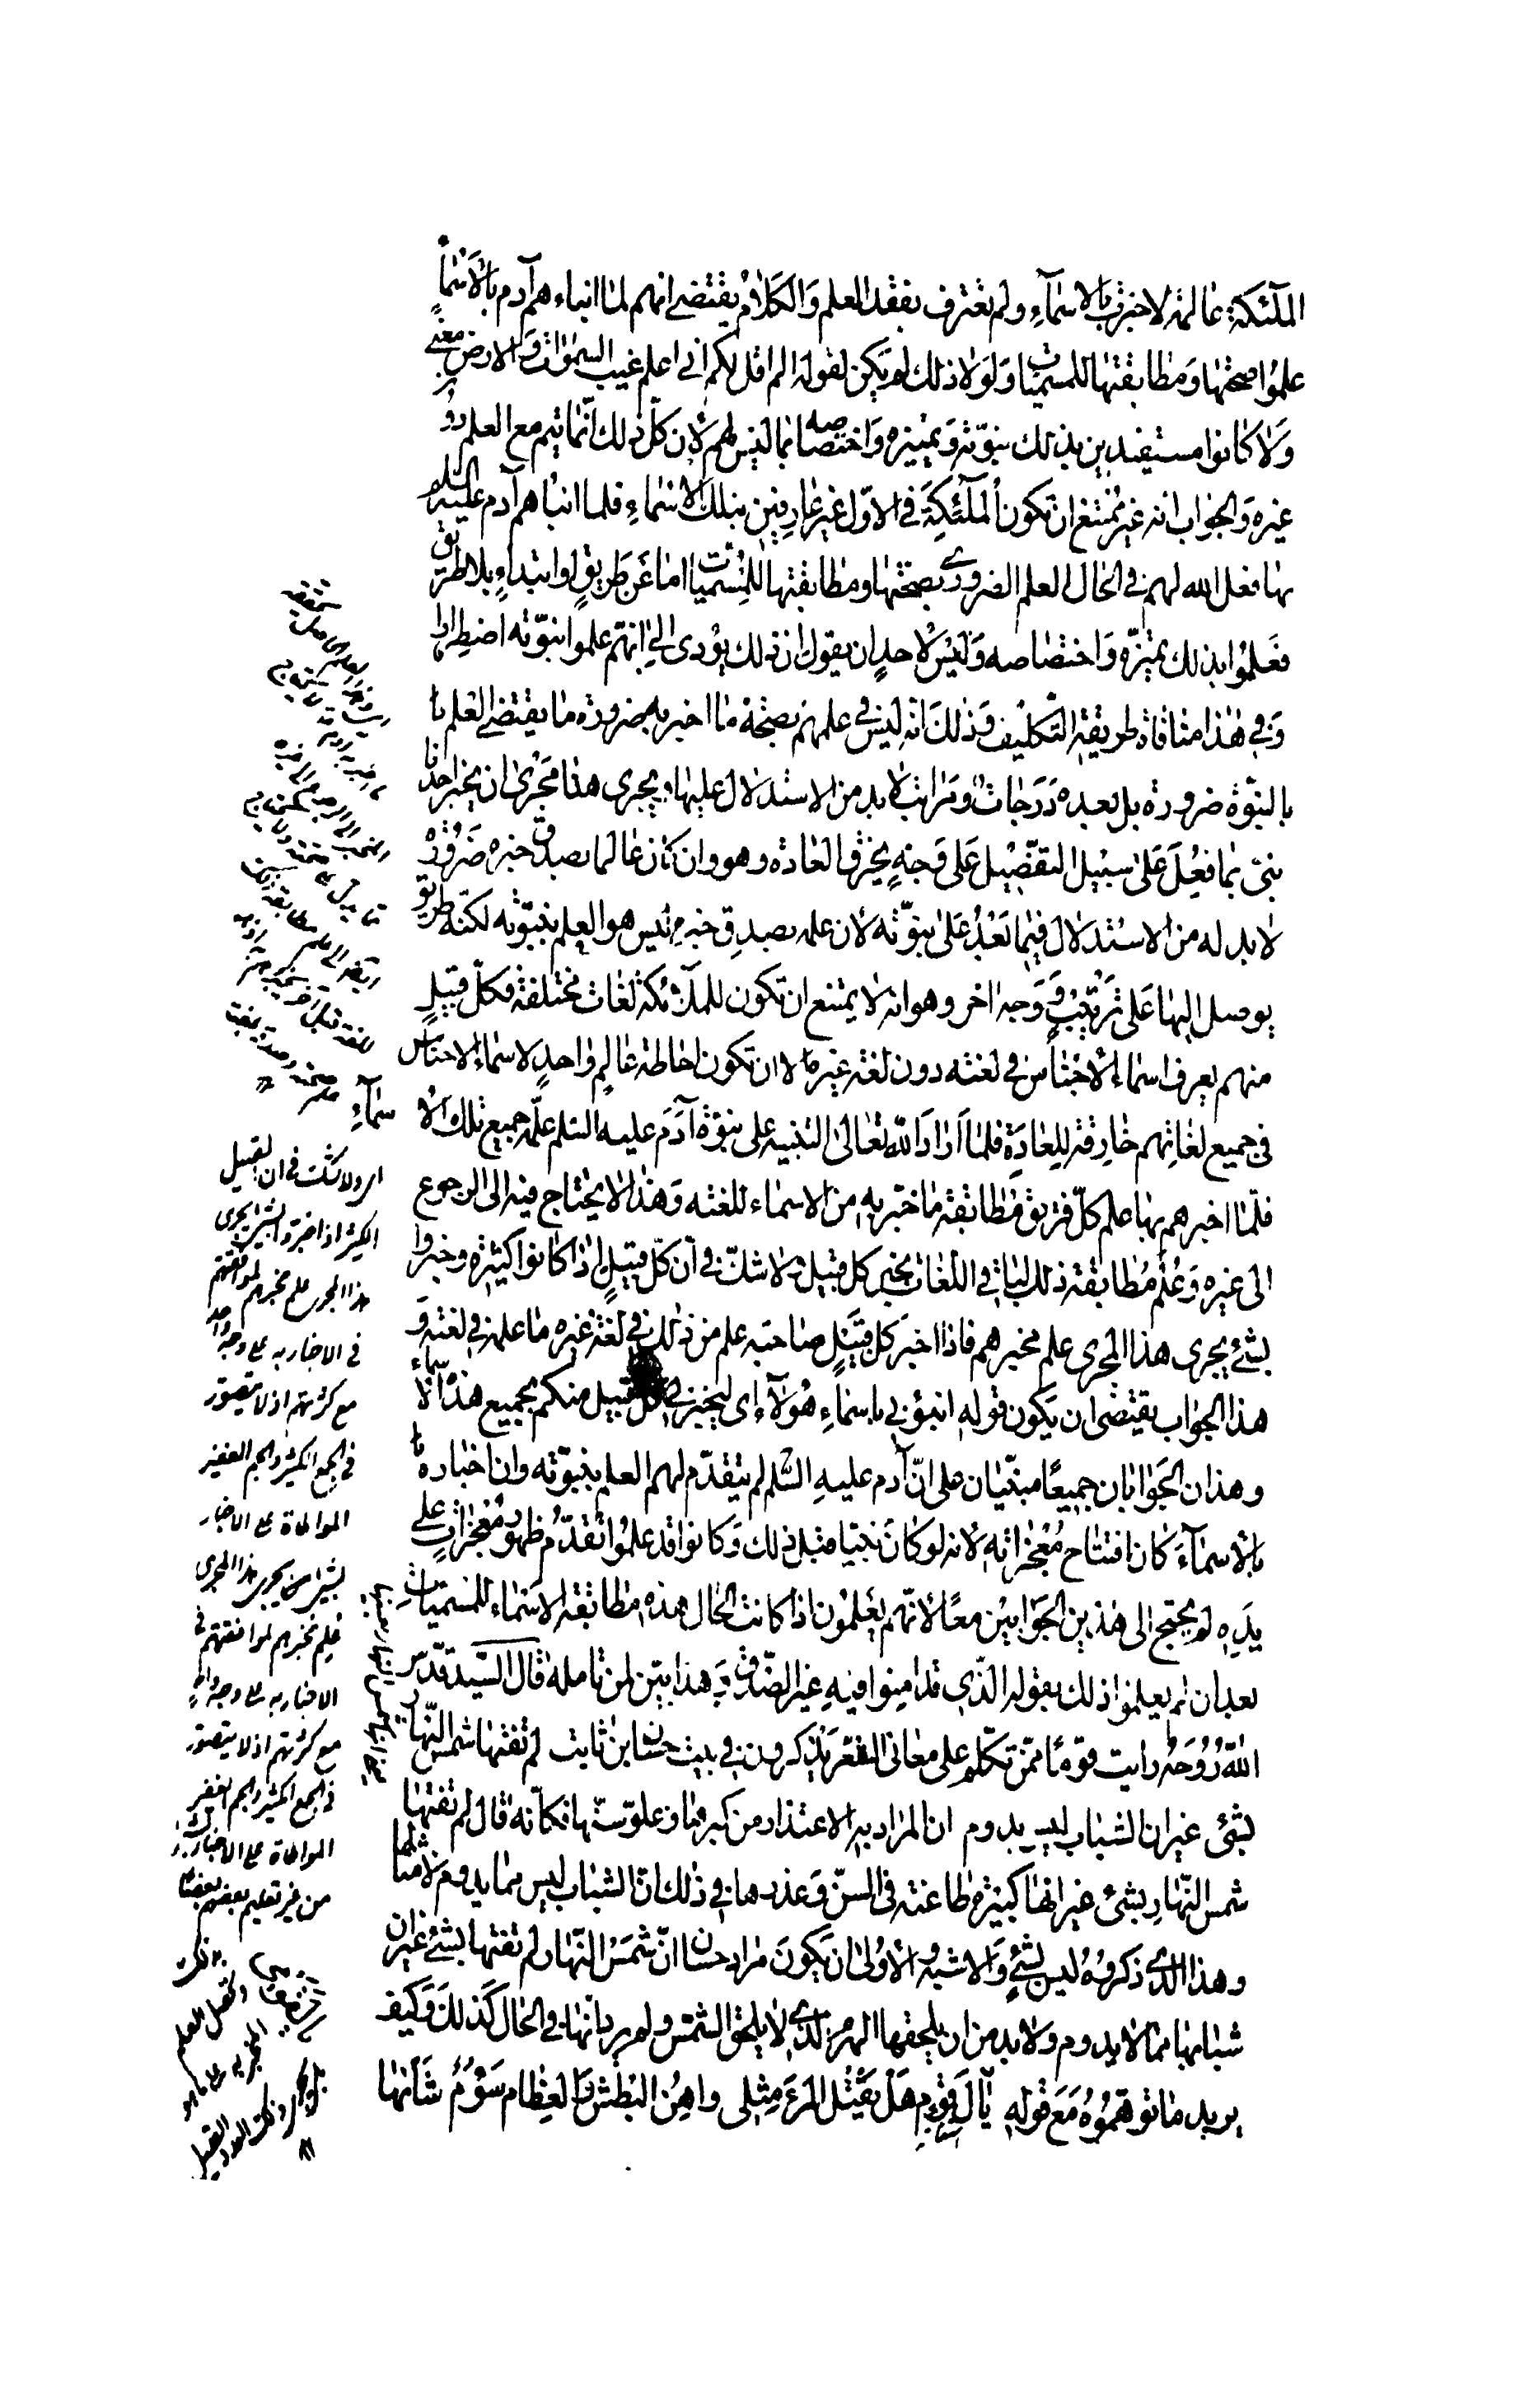 الملٓئكة عالمة لاخبرت بالاسمآء ولم تعترف بفقد العلم والكلام يقتضي انهم لما انباءهم آدم بالاسمآء
علموا صحتها ومطابقتها للمسميات ولولا ذلك لم يكن لقوله الم اقل لكم اني اعلم غيب السموات والارض معنى
ولا كانوا مستفيدين بذلك نبوّته وتميزه واختصاصه بما ليس لهم لان كلّ ذلك انّما يتم مع العلم دون
غيره والجواب انه غير ممتنع ان تكون الملٓئكة في الاوّل غير عارفين بتلك الاسماء فلما انباهم آدم عليه السلم
بها فعل الله لهم في الحال العلم الضروري بصحتها ومطابقتها للمسميات اما عن طريق او ابتداء بلا طريق
فعلموا بذلك تميزه واختصاصه وليس لاحد ان يقول ان ذلك يؤدى الى انهم علموا نبوّته اضطرارا
وفي هذا منافاة طريقة التكليف وذلك انه ليس في علمهم بصحة ما اخبر به ضرورة ما يقتضي العلم با
بالنبوّة ضرورة بل بعده درجات ومراتب لا بد من الاستدلال عليها ويجرى هذا مجرى ان يخبر احدنا
نبىّ بما فعل على سبيل التفصيل على وجه يخرق العادة وهو وان كان عالما بصدق خبره ضرورة
لا بد له من الاستدلال فيما بعد على نبوّته لان علمه بصدق خبره ليس هو العلم بنبوّته لكنّه طريق
يوصل اليها على ترتيب ووجه اخر وهو انه لا يمتنع ان تكون للملائكة لغات مختلفة فكلّ قبيل
منهم يعرف اسماء الاجناس في لغته دون لغة غيره الا ان تكون احاطة عالم واحد لاسماء الاجناس
في جميع لغاتهم خارقة للعادة فلما اراد الله تعالى التنبيه على نبوّة آدم عليه السلم علّمه جميع تلك الا سمآء
فلمّا اخبرهم بها علم كلّ فريق مطابقة ما خبّر به من الاسماء للغته وهذا لا يحتاج فيه الى الرجوع
الى غيره وعلم مطابقة ذلك لباقى اللغات بخبر كل قبيل ولا شكّ في انّ كلّ قبيل اذا كانوا كثيرة وخبروا
بشئ يجرى هذا المجرى علم مخبرهم فاذا اخبر كل قبيل صاحبه علم من ذلك في لغة غيره ما علمه في لغته و
هذا الجواب يقتضى ان يكون قوله انبؤني باسماء هؤلآء اى ليخبرني كل قبيل منكم بجميع هذه الا سماء
وهذان الجوابان جميعًا مبنيّان على انّ آدم عليه السّلم لم يتقدّم لهم العلم بنبوّته وان اخباره با
بالاسمآء كان افتتاح معجزاته لانه لو كان نبيّا قبل ذلك وكانوا قد علموا تقدّم ظهور معجزات على
يده لم يحتج الى هذين الجوابين معًا لانّهم يعلمون اذا كانت الحال هذه مطابقة الاسماء للمسميات
بعد ان لم يعلموا ذلك بقوله الّذى قد امنوا فيه غير الصّدق وهذا بيّن لمن تامله قال السّيد قدّس
الله روحه رايت قومًا ممّن تكلّم على معانى الشعر يذكرون في بيت حسان ابن ثابت لم تفتها شمس النّهار
بشئ غير ان الشباب ليس يدوم ان المراد به الاعتذار من كبرها وعلوّ سنّها فكانّه قال لم تفتها
شمس النّهار بشئ غير انها كبيرة طاعنة في السنّ وعذرها في ذلك انّ الشباب ليس مما يدوم لامثالها
وهذا الّذي ذكروه ليس بشئ والاشبه والاولى ان يكون مراد حسان انّ شمس النّهار لم تفتها بشئ غير ان
شبابها مما لا يدوم ولا بد من ان يلحقها الهرم الذي لا يلحق الشمس ولم يرد انّها في الحال كذلك وكيف
يريد ما توهّموه مع قوله يال قوم هل يقتل المرء مثلي واهن البطش والعظام سؤوم شانها
امر ولا شك في ان القبيل
الكثير اذا خبروا بشئ يجرى
هذا المجرى علم مخبرهم لموافقتهم
في الاخبار به على وجه واحد
مع كثرتهم اذ لا يتصوّر
في الجمع الكثير والجم الغفير
المواطاة على الاخبار
بشئ يجرى هذا المجرى
علم مخبرهم لموافقتهم في
الاخبار به على وجه واحد
مع كثرتهم اذ لا يتصوّر
في الجمع الكثير والجم الغفير
المواطاة على الاخبار
من غير تعليم بعضهم بعضًا